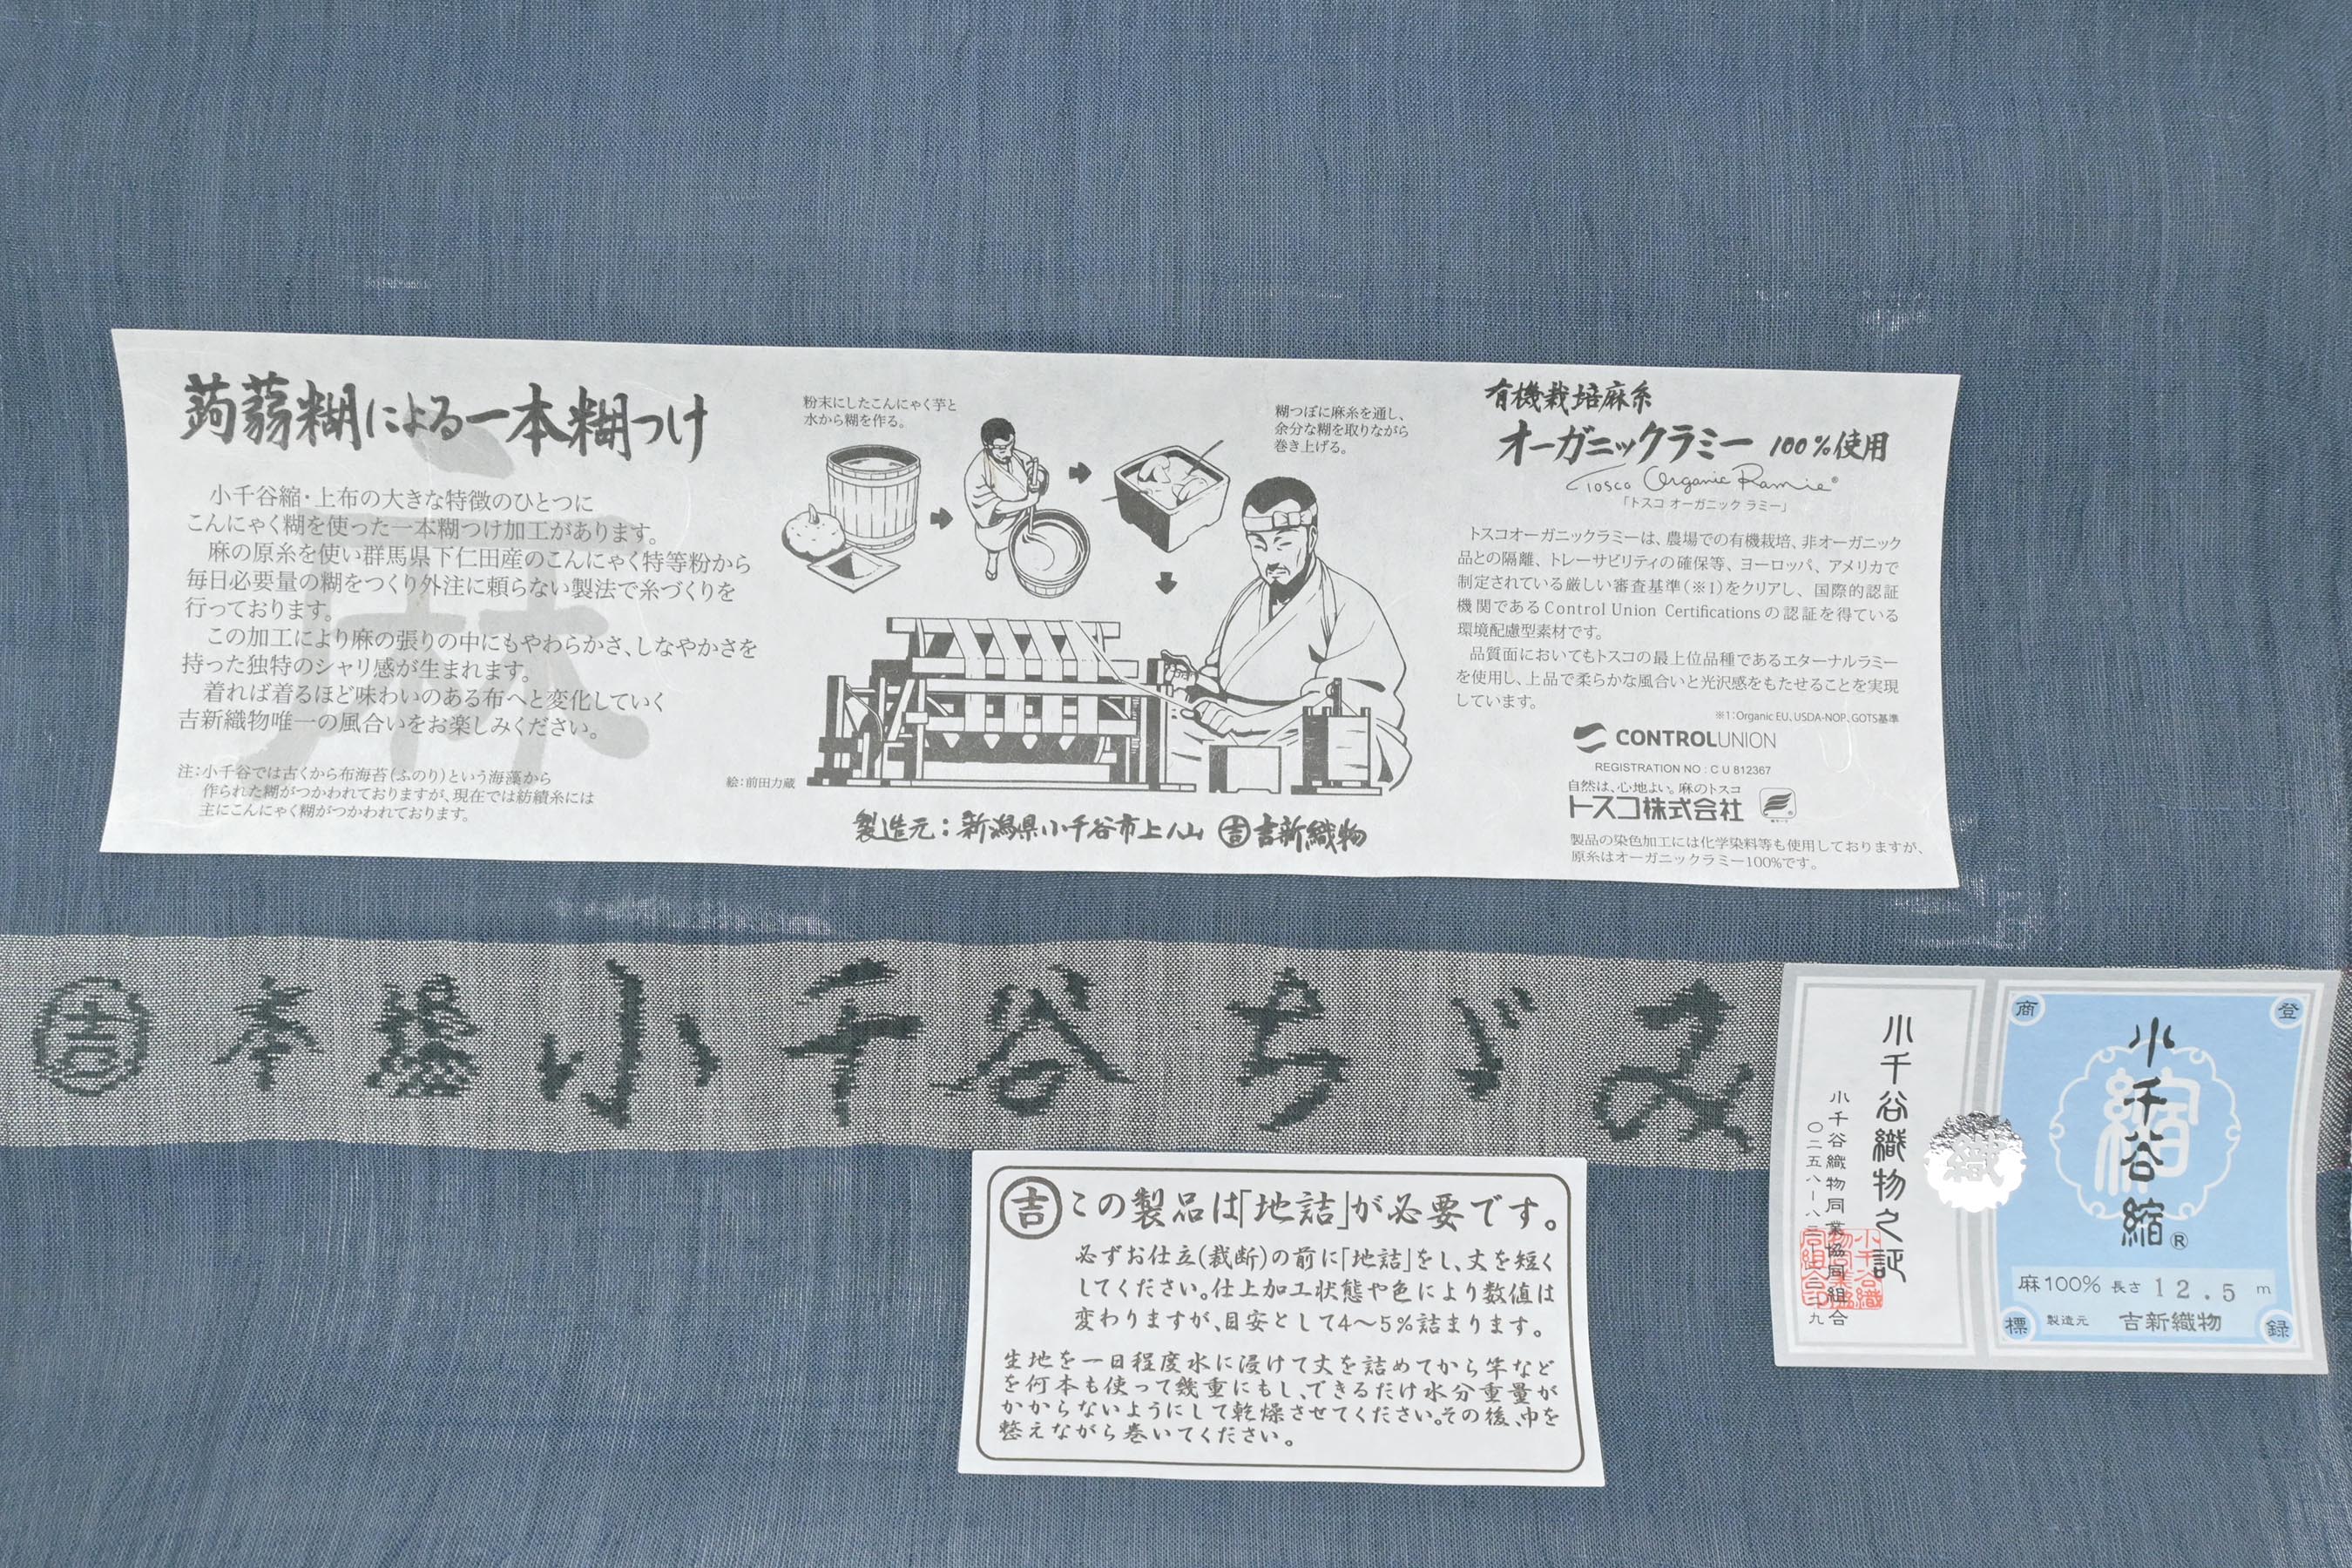 蒟蒻糊による一本糊つけ
小千谷縮・上布の大きな特徴のひとつに
こんにゃく糊を使った一本糊つけ加工があります。
麻の原糸を使い群馬県下仁田産のこんにゃく特等粉から
毎日必要量の糊をつくり外注に頼らない製法で糸づくりを
行っております。
この加工により麻の張りの中にもやわらかさ、しなやかさを
持った独特のシャリ感が生まれます。
着れば着るほど味わいのある布へと変化していく
吉新織物唯一の風合いをお楽しみください。
麻
注:小千谷では古くから布海苔(ふのり)という海藻から
作られた糊がつかわれておりますが、現在では紡績糸には
主にこんにゃく糊がつかわれております。
粉末にしたこんにゃく芋と
水から糊を作る。
糊つぼに麻糸を通し、
余分な糊を取りながら
巻き上げる。
絵:前田力蔵
製造元:新潟県小千谷市上ノ山 吉 吉新織物
有機栽培麻糸
オーガニックラミー 100%使用
Tosco Organic Ramie®
「トスコ オーガニック ラミー」
トスコオーガニックラミーは、農場での有機栽培、非オーガニック
品との隔離、トレーサビリティの確保等、ヨーロッパ、アメリカで
制定されている厳しい審査基準(※1)をクリアし、国際的認証
機関であるControl Union Certificationsの認証を得ている
環境配慮型素材です。
品質面においてもトスコの最上位品種であるエターナルラミー
を使用し、上品で柔らかな風合いと光沢感をもたせることを実現
しています。
※1:Organic EU、USDA-NOP、GOTS基準
CONTROLUNION
REGISTRATION NO : C U 812367
自然は、心地よい。麻のトスコ
トスコ株式会社
製品の染色加工には化学染料等も使用しておりますが、
原糸はオーガニックラミー100%です。
吉 本場小千谷ちゞみ
吉 この製品は「地詰」が必要です。
必ずお仕立(裁断)の前に「地詰」をし、丈を短く
してください。仕上加工状態や色により数値は
変わりますが、目安として4〜5%詰まります。
生地を一日程度水に浸けて丈を詰めてから竿など
を何本も使って幾重にもし、できるだけ水分重量が
かからないようにして乾燥させてください。その後、巾を
整えながら巻いてください。
小千谷織物之証
小千谷織物同業協同組合
織
登
商
標
録
縮
小千谷縮®
麻100% 長さ 12.5 m
製造元 吉新織物